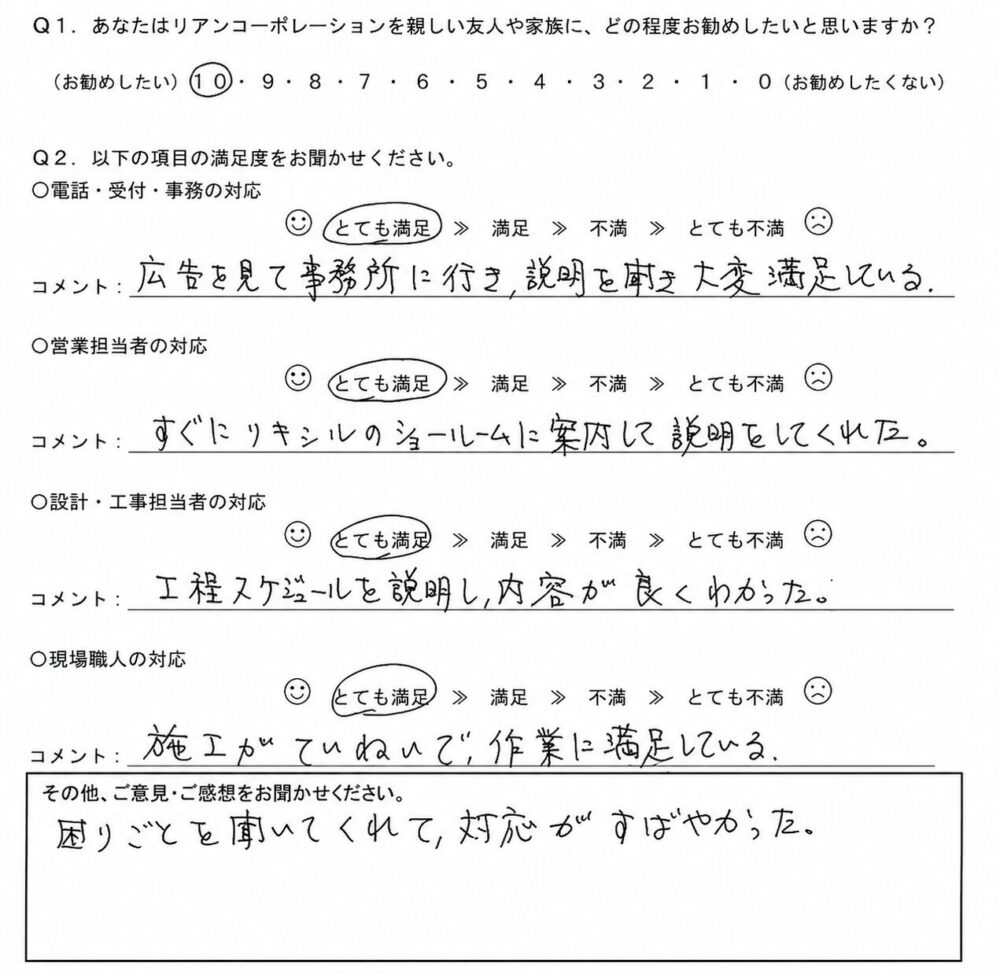 Q1. あなたはリアンコーポレーションを親しい友人や家族に、どの程度お勧めしたいと思いますか？
（お勧めしたい）10・9・8・7・6・5・4・3・2・1・0（お勧めしたくない）
Q2. 以下の項目の満足度をお聞かせください。
○電話・受付・事務の対応
とても満足 ≫ 満足 ≫ 不満 ≫ とても不満
コメント：広告を見て事務所に行き,説明を聞き大変満足している.
○営業担当者の対応
とても満足 ≫ 満足 ≫ 不満 ≫ とても不満
コメント：すぐにリキシルのショールームに案内して説明をしてくれた。
○設計・工事担当者の対応
とても満足 ≫ 満足 ≫ 不満 ≫ とても不満
コメント：工程スケジュールを説明し,内容が良くわかった。
○現場職人の対応
とても満足 ≫ 満足 ≫ 不満 ≫ とても不満
コメント：施工がていねいで,作業に満足している.
その他、ご意見・ご感想をお聞かせください。
困りごとを聞いてくれて,対応がすばやかった。